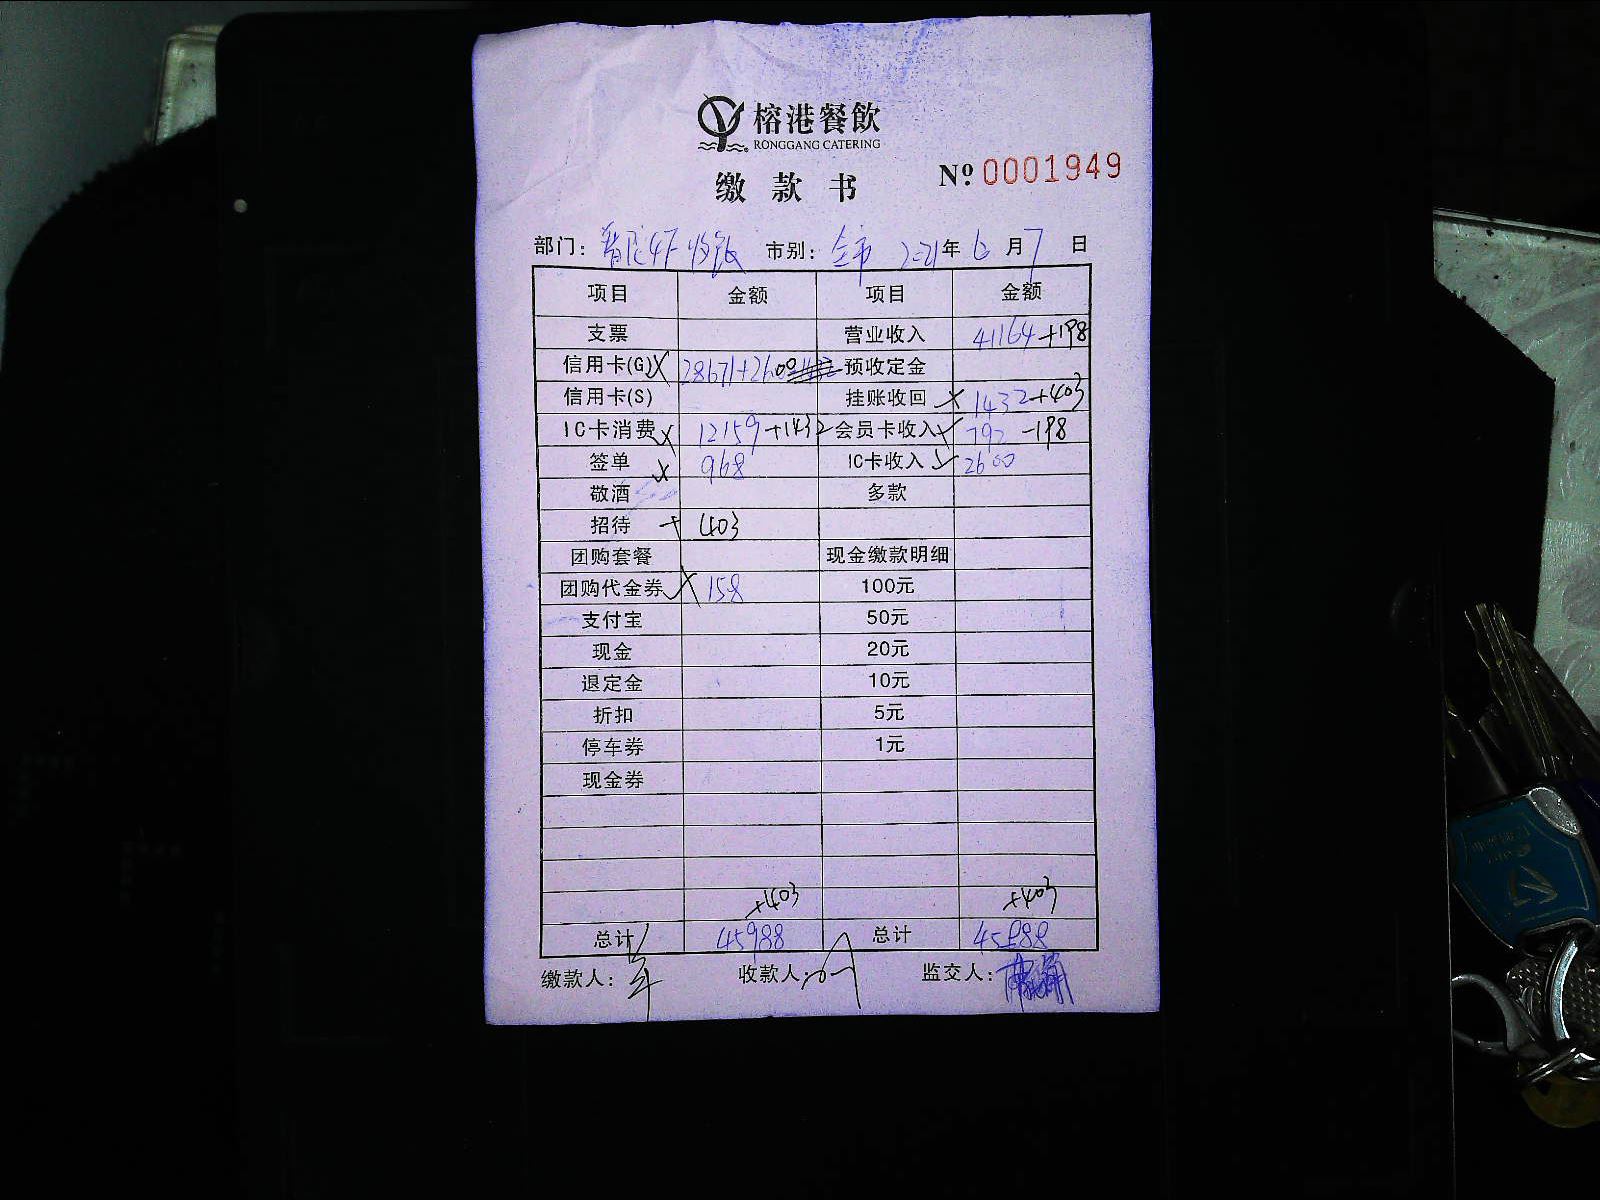 榕港餐飲
RONGGANG CATERING
№ 0001949
缴款书
部门: 4F 收银 市别: 全市 2021年 6月 7日
项目 金额 项目 金额
支票 营业收入 41164+198
信用卡(G) 28671+2600 预收定金
信用卡(S) 挂账收回 1432+403
IC卡消费 12159+1432 会员卡收入 792-198
签单 968 IC卡收入 2600
敬酒 多款
招待 403
团购套餐 现金缴款明细
团购代金券 158 100元
支付宝 50元
现金 20元
退定金 10元
折扣 5元
停车券 1元
现金券
+403 +403
总计 45988 总计 45988
缴款人: 收款人: 监交人: